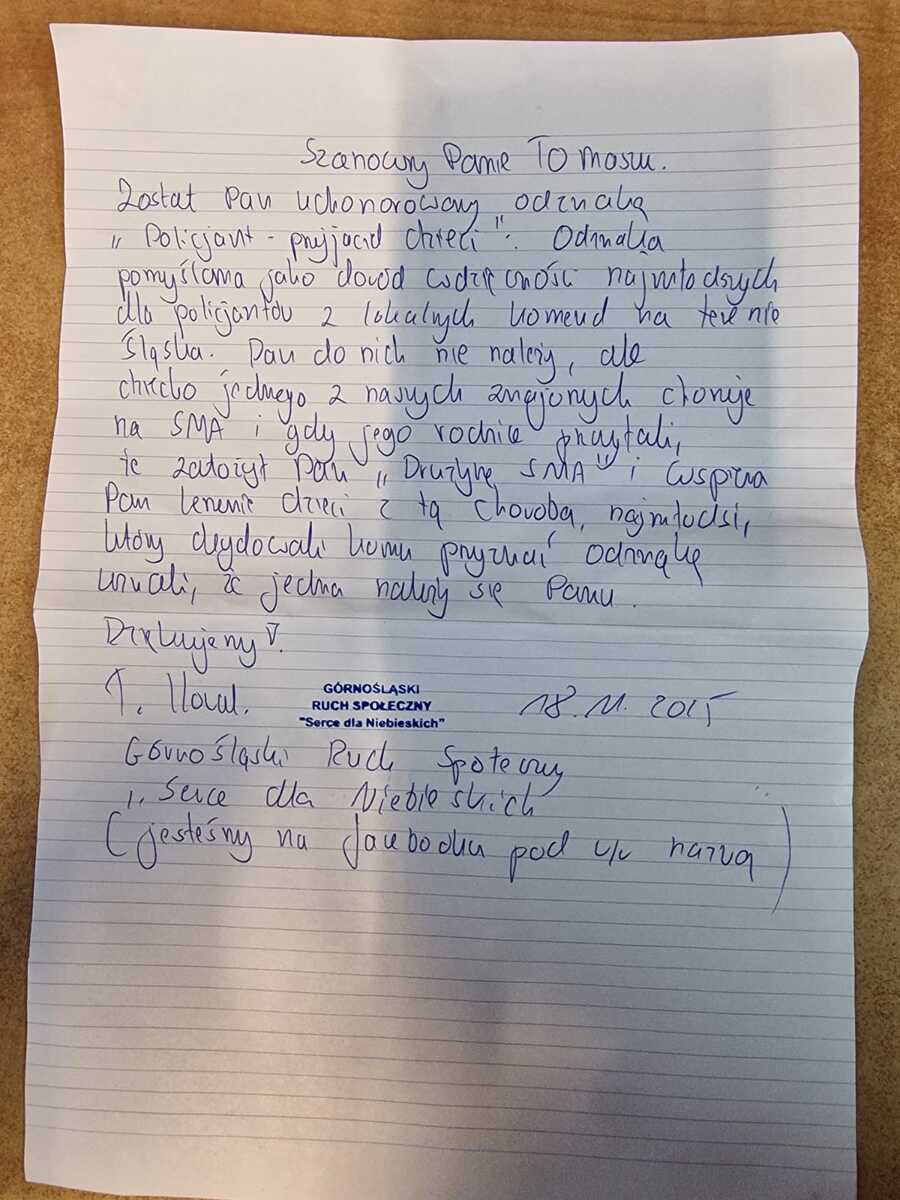 Szanowny Panie Tomaszu.
Został Pan uchonorowany odznaką
„Policjant - przyjaciel dzieci". Odznaka
pomyślana jako dowód wdzięczności najmłodszych
dla policjantów z lokalnych komend na terenie
Śląska. Pan do nich nie należy, ale
dziecko jednego z naszych znajomych choruje
na SMA i gdy jego rodzice przeczytali,
że założył Pan „Drużynę SMA" i wspiera
Pan leczenie dzieci z tą chorobą, najmłodsi,
którzy decydowali komu przyznać odznakę
uznali, że jedna należy się Panu.
Dziękujemy!
GÓRNOŚLĄSKI
RUCH SPOŁECZNY
"Serce dla Niebieskich"
18.11.2025
Górnośląski Ruch Społeczny
„Serce dla Niebieskich
(jesteśmy na facebooku pod w/w nazwą)